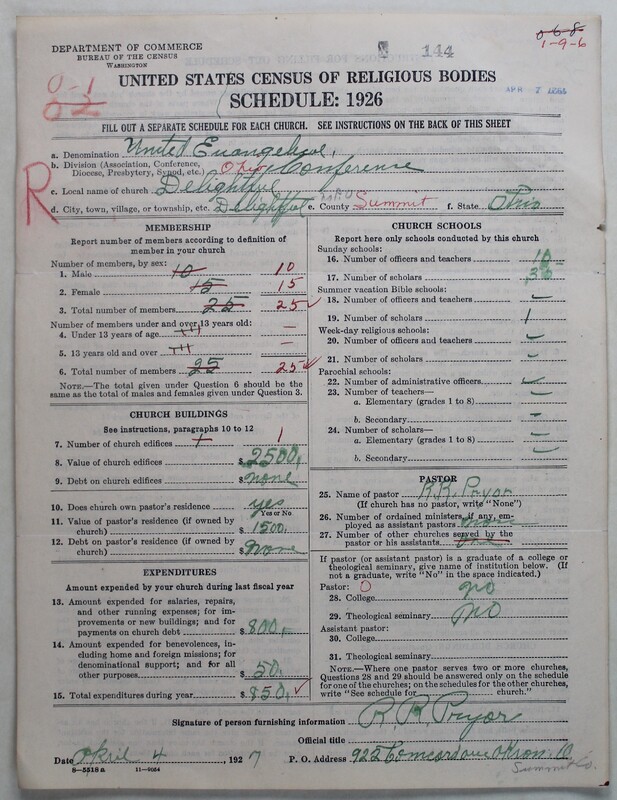 DEPARTMENT OF COMMERCE
BUREAU OF THE CENSUS
WASHINGTON
144
0-6-8
1-9-6
0-1
02
UNITED STATES CENSUS OF RELIGIOUS BODIES
APR 7
SCHEDULE: 1926
FILL OUT A SEPARATE SCHEDULE FOR EACH CHURCH. SEE INSTRUCTIONS ON THE BACK OF THIS SHEET
R
a. Denomination United Evangelical,
b. Division (Association, Conference, Diocese, Presbytery, Synod, etc.) Ohio Conference
c. Local name of church Delightful
d. City, town, village, or township, etc. Delightful e. County Summit f. State Ohio
MEMBERSHIP
Report number of members according to definition of member in your church
Number of members, by sex:
1. Male 10 10
2. Female 15 15
3. Total number of members 25 25
Number of members under and over 13 years old:
4. Under 13 years of age —
5. 13 years old and over —
6. Total number of members 25 25
NOTE.—The total given under Question 6 should be the same as the total of males and females given under Question 3.
CHURCH BUILDINGS
See instructions, paragraphs 10 to 12
7. Number of church edifices 1 1
8. Value of church edifices $2500.
9. Debt on church edifices $none
10. Does church own pastor's residence yes
Yes or No
11. Value of pastor's residence (if owned by church) $1500.
12. Debt on pastor's residence (if owned by church) $None
EXPENDITURES
Amount expended by your church during last fiscal year
13. Amount expended for salaries, repairs, and other running expenses; for improvements or new buildings; and for payments on church debt $800.
14. Amount expended for benevolences, including home and foreign missions; for denominational support; and for all other purposes $50.
15. Total expenditures during year $850.
CHURCH SCHOOLS
Report here only schools conducted by this church
Sunday schools:
16. Number of officers and teachers 10
17. Number of scholars 36
Summer vacation Bible schools:
18. Number of officers and teachers —
19. Number of scholars
Week-day religious schools:
20. Number of officers and teachers —
21. Number of scholars —
Parochial schools:
22. Number of administrative officers —
23. Number of teachers—
a. Elementary (grades 1 to 8) —
b. Secondary —
24. Number of scholars—
a. Elementary (grades 1 to 8) —
b. Secondary —
PASTOR
25. Name of pastor R.R. Pryor
(If church has no pastor, write "None")
26. Number of ordained ministers, if any, employed as assistant pastors none
27. Number of other churches served by the pastor or his assistants
If pastor (or assistant pastor) is a graduate of a college or theological seminary, give name of institution below. (If not a graduate, write "No" in the space indicated.)
Pastor: 0
28. College no
29. Theological seminary no
Assistant pastor:
30. College
31. Theological seminary
NOTE.—Where one pastor serves two or more churches, Questions 28 and 29 should be answered only on the schedule for one of the churches; on the schedules for the other churches, write "See schedule for church."
Signature of person furnishing information R. R. Pryor
Official title
Date April 4, 1927 P. O. Address 922 Concord ave Akron. O
8—5518 a 11—9064
Summit Co.